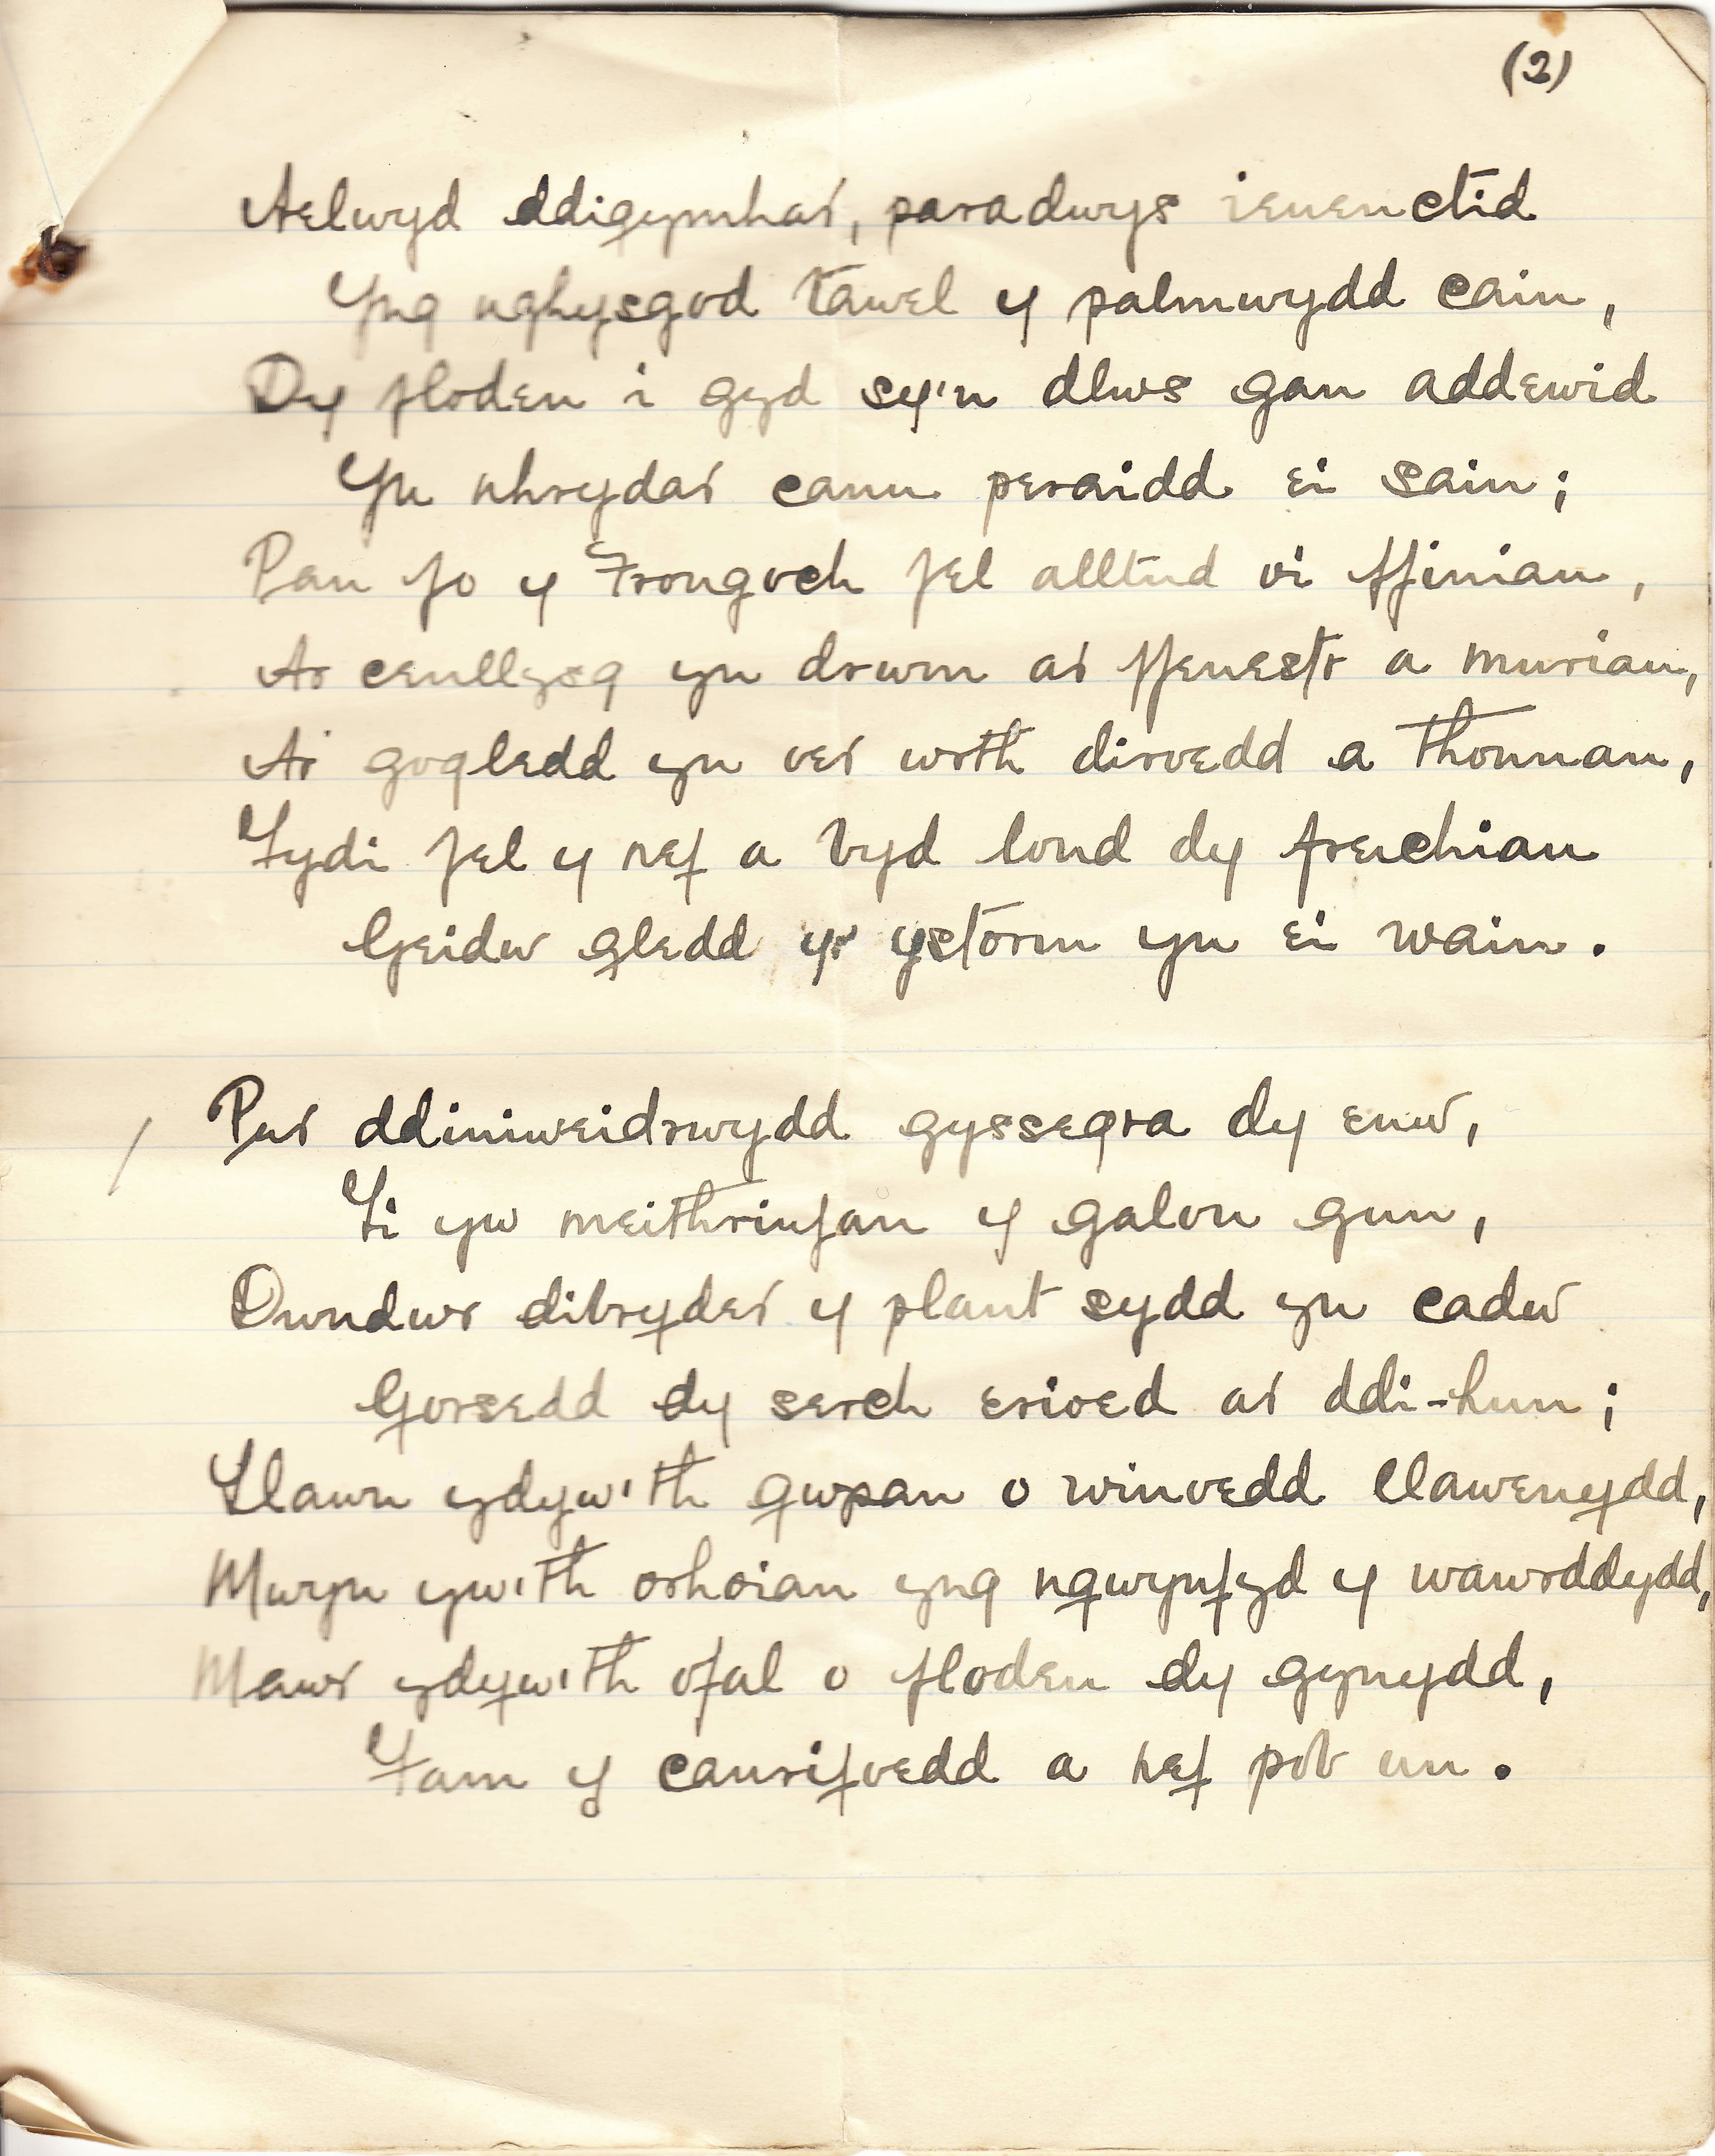 (2)
Aelwyd ddigymhar, paradwys ieuenctid
Yng nghysgod tawel y palmwydd cain,
Dy flodeu i gyd sy'n dlws gan addewid
Yn nhrydar canu peraidd ei sain;
Pan fo y Frongoch fel alltud o'i ffiniau,
A'r cenllysg yn drwm ar ffenestr a muriau,
A'r gogledd yn oer wrth diroedd a thonnau,
Tydi fel y nef a byd lond dy freichiau
Geidw gledd yr ystorm yn ei wain.
Pur ddiniweidrwydd gyssegra dy enw,
Ti yw meithrinfan y galon gun,
Dwndwr dibryder y plant sydd yn cadw
Gorsedd dy serch erioed ar ddi-hun;
Llawn ydyw'th gwpan o winoedd llawenydd,
Mwyn yw'th orhoian yng ngwynfyd y wawrddydd,
Mawr ydyw'th ofal o flodeu dy gynydd,
Fam y canrifoedd a nef pob un.